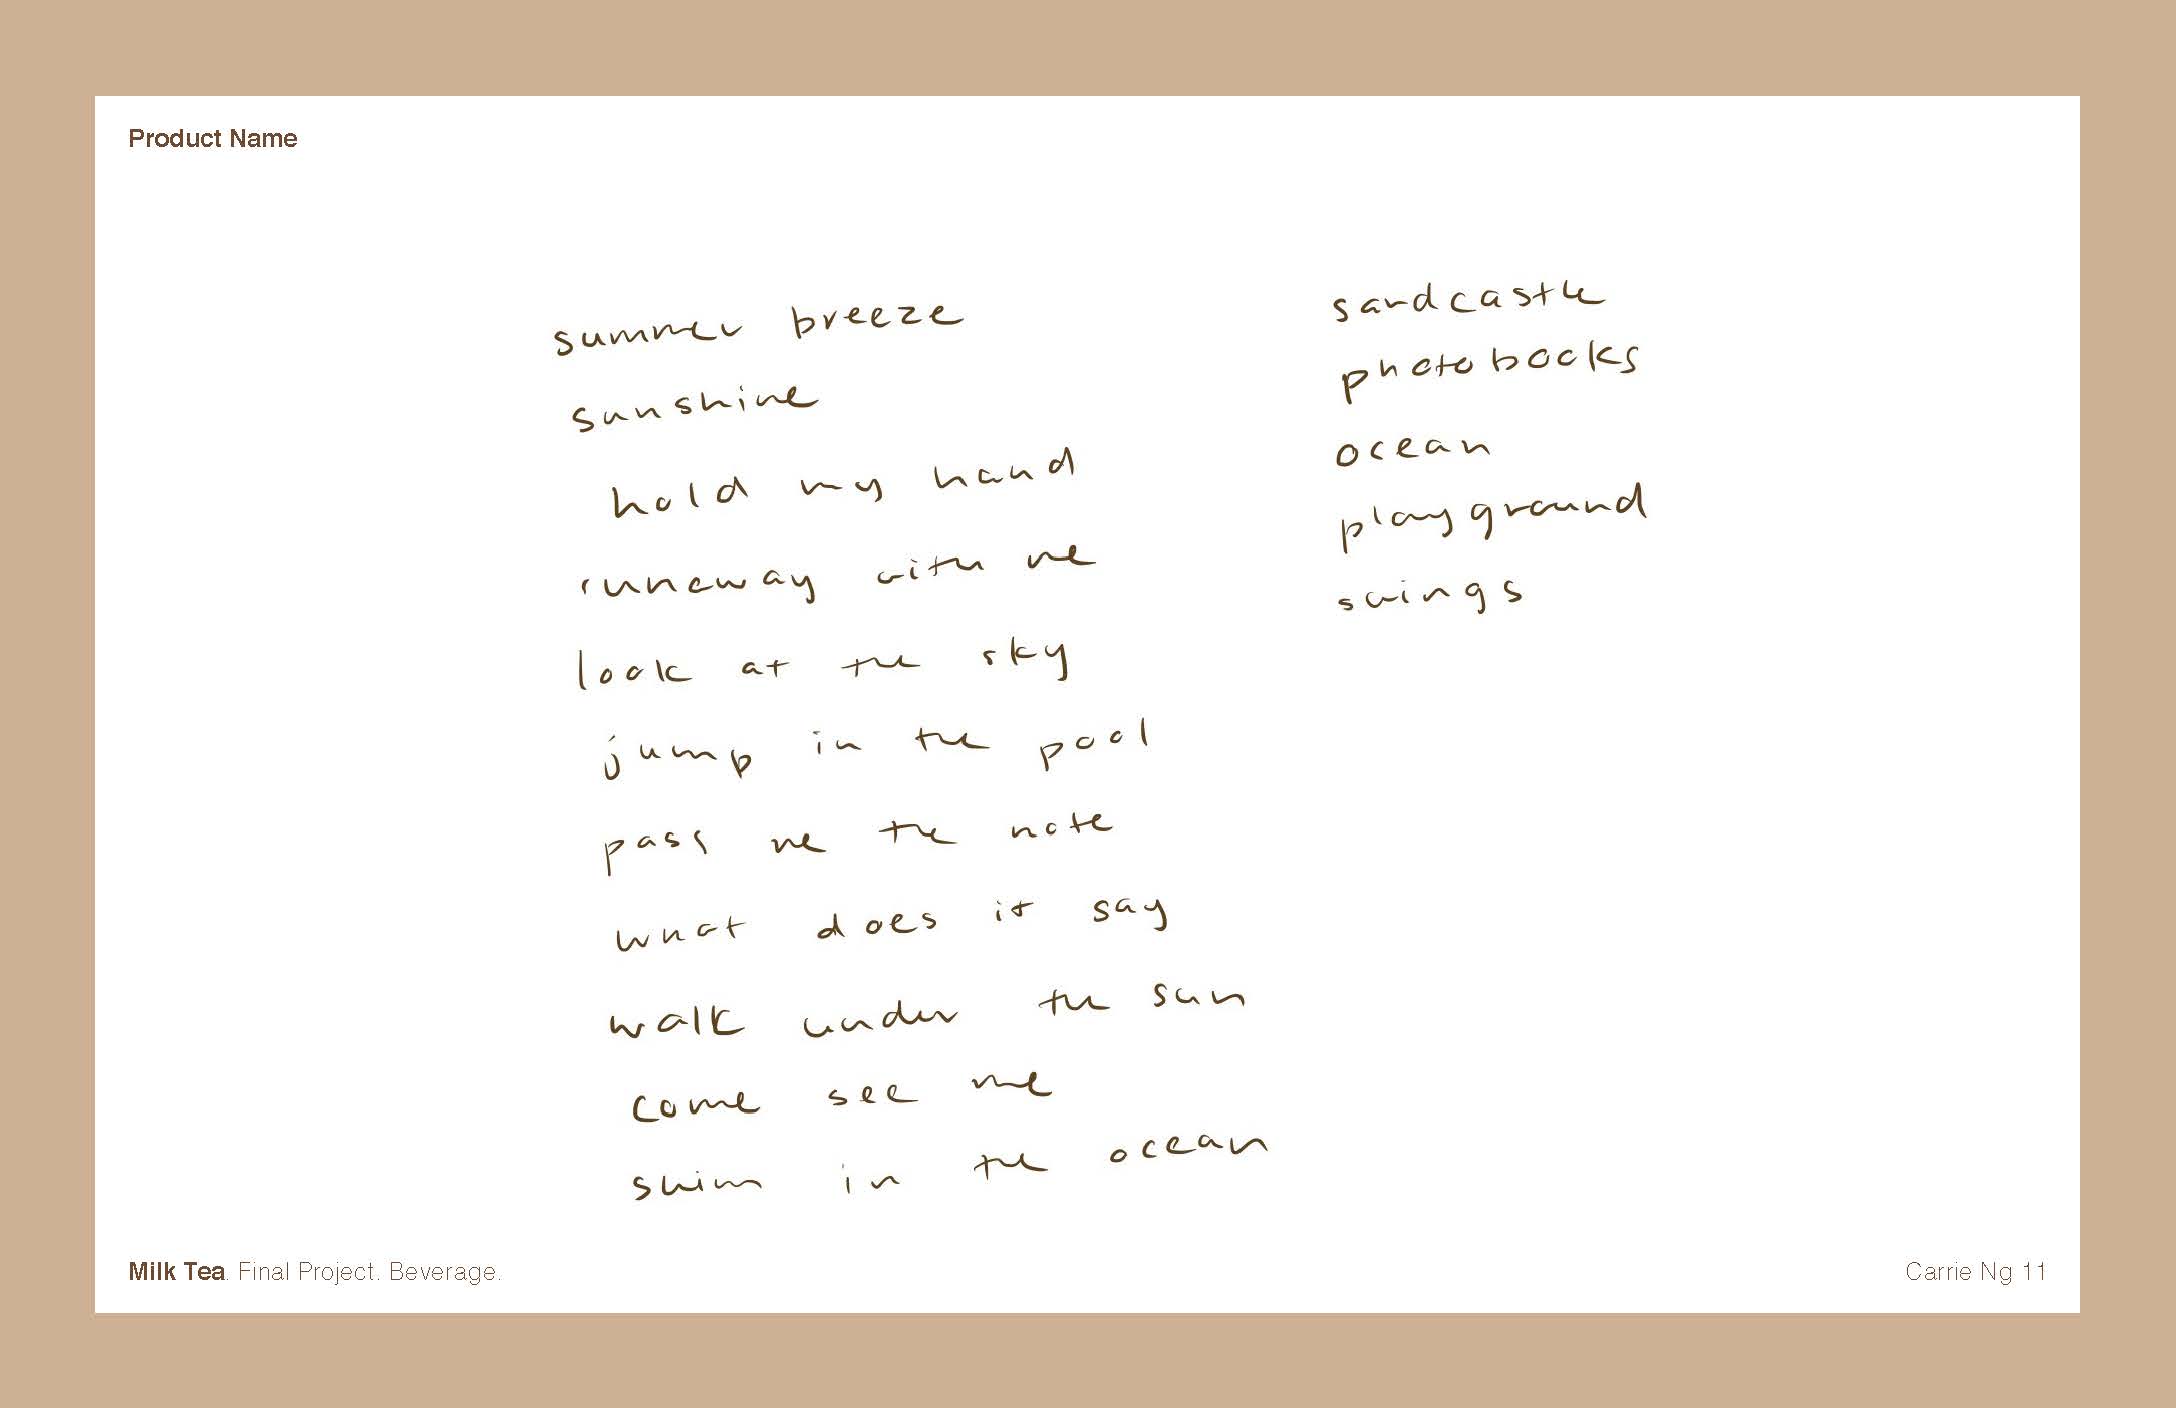 Product Name
summer breeze
sunshine
hold my hand
runaway with me
look at the sky
jump in the pool
pass me the note
what does it say
walk under the sun
come see me
swim in the ocean
sandcastle
photobooks
ocean
playground
swings
Milk Tea. Final Project. Beverage.
Carrie Ng 11